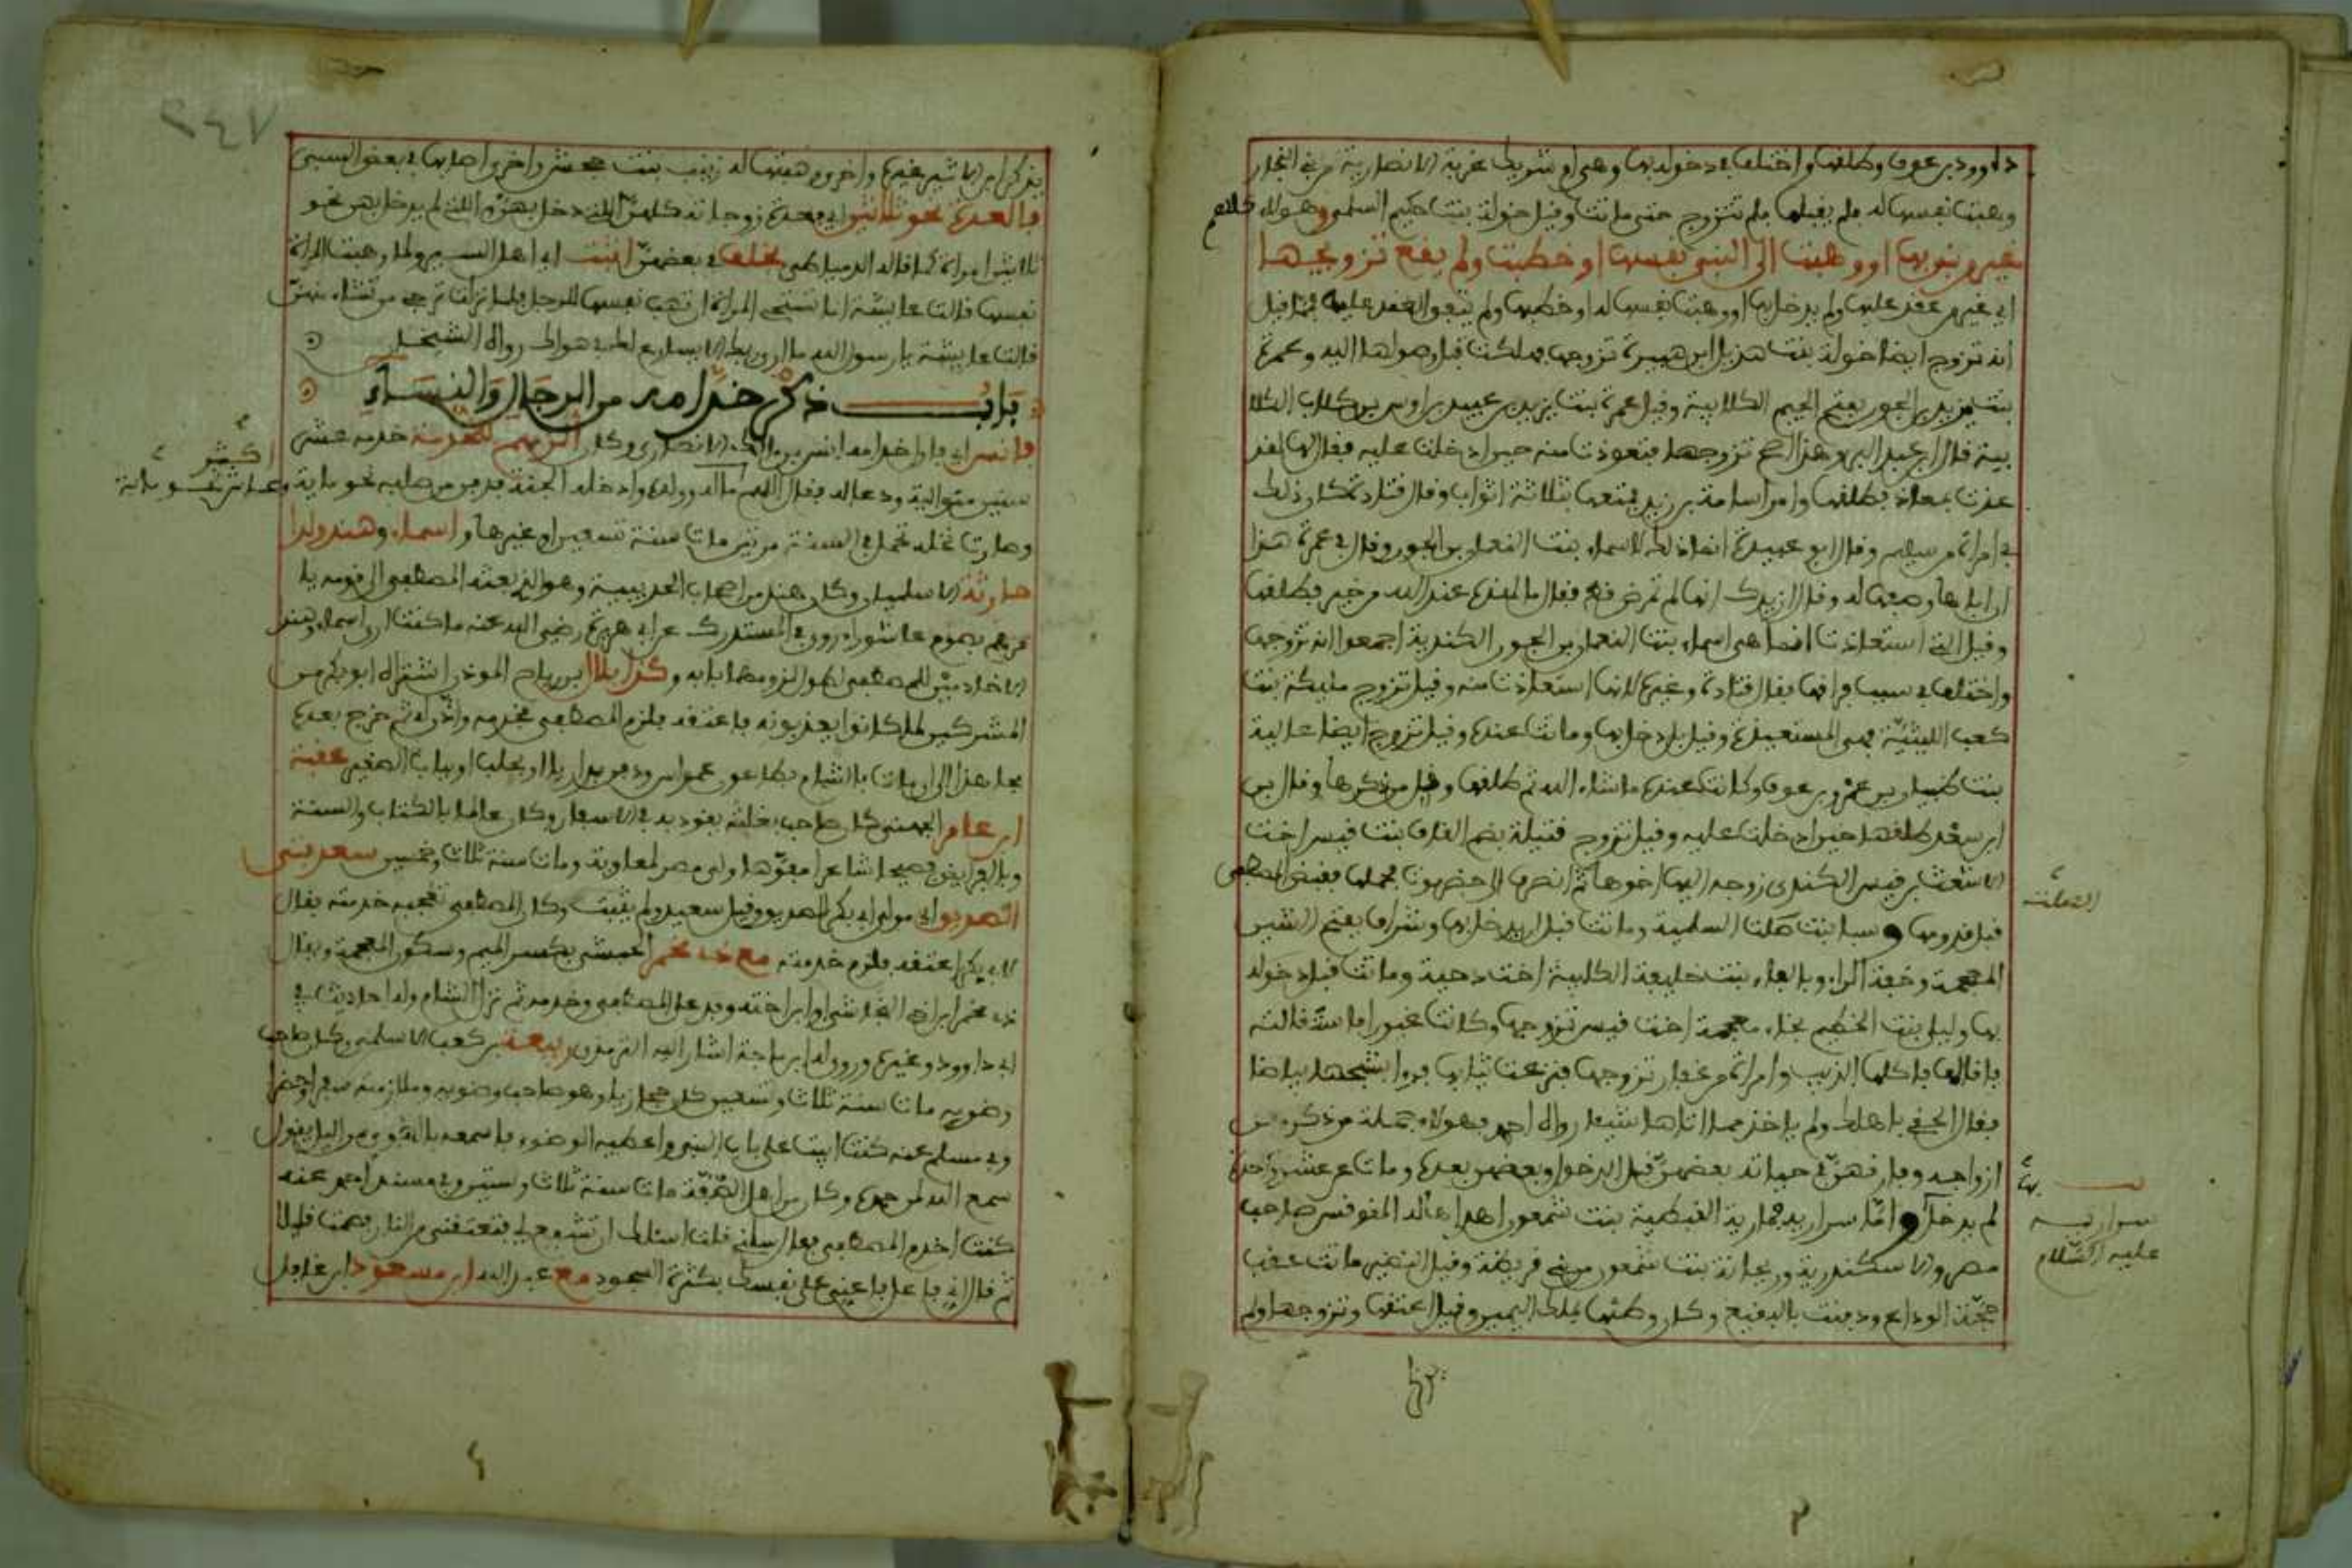 داوود بن عوف وطلقها واختلف في دخوله بها وهي ام شريك غزية الانصارية من بني النجار
وهبت نفسها له فلم يقبلها فلم تتزوج حتى ماتت وقيل خولة بنت حكيم السلمي وهولاء كلهم
غير من بنى بها او وهبت الى النبي نفسها او خطبت ولم يقع تزويجها
اي غير من عقد عليها ولم يدخل بها او وهبت نفسها له او خطبها ولم يتفق العقد عليها فمما قيل
انه تزوج ايضا خولة بنت هذيل ابن هبيرة تزوجها فهلكت قبل وصولها اليه وعمرة
بنت يزيد بن الجون بفتح الجيم الكلابية وقيل عمرة بنت يزيد بن عبيد بن اوس بن كلاب الكلا
بية قال ابن عبد البر وهذا اصح تزوجها فتعوذت منه حين ادخلت عليه فقال لها لقد
عذت بمعاذ فطلقها وامر اسامة بن زيد فمتعها بثلاثة اثواب وقال قتادة كان ذلك
في امراة من سليم وقال ابو عبيدة انما ذلك لاسماء بنت النعمان بن الجون وقال في عمرة هذا
ان اباها وصفها له وقال ازيدك انها لم تمرض قط فقال ما لهذه عند الله من خير فطلقها
وقيل التي استعاذت انما هي اسماء بنت النعمان بن الجون الكندية اجمعوا انه تزوجها
واختلف في سبب فراقها فقال قتادة وغيره لانها استعاذت منه وقيل تزوج مليكة بنت
كعب الليثية فهي المستعيذة وقيل بل دخل بها وماتت عنده وقيل تزوج ايضا عالية
بنت ظبيان بن عمرو بن عوف وكانت عنده ما شاء الله ثم طلقها وقل من ذكرها وقال بن
ابن سعد طلقها حين ادخلت عليه وقيل تزوج قتيلة بضم القاف بنت قيس اخت
الاشعث بن قيس الكندي زوجه اليها اخوها ثم انصرف الى حضرموت فحملها فقبض المصطفى
قبل قدومها وسبا بنت الصلت السلمية وماتت قبل ان يدخل بها وشراف بفتح الشين
المعجمة وخفة الراء وبالفاء بنت خليفة الكلبية اخت دحية وماتت قبل دخوله
بها وليلى بنت الخطيم بخاء معجمة اخت قيس تزوجها وكانت غيورا فاستقالته
فاقالها فاكلها الذيب وامراة من غفار تزوجها فنزعت ثيابها فروا بكشحها بياضا
فقال الحقي باهلك ولم ياخذ مما اتاها شيئا رواه احمد فهولاء جملة من ذكر من
ازواجه وفارقهن في حياته بعضهن قبل الدخول وبعضهن بعده ومات عن عشر واحدة
لم يدخل بها واما سراريه فمارية القبطية بنت شمعون اهداها له المقوقس صاحب
مصر والاسكندرية وريحانة بنت شمعون من بني قريظة وقيل النضير ماتت عقب
حجة الوداع ودفنت بالبقيع وكان وطئها بملك اليمين وقيل اعتقها وتزوجها ولم
الصلت
بها
سراريه
عليه السلام
٢٤٧
يذكر ابن الاثير غيره واخرى وهبتها له زينب بنت جحش واخرى اصابها في بعض السبي
فالعدة نحو ثلاثين اي فعدة زوجاته كلهن اللتي دخل بهن واللتي لم يدخل بهن نحو
ثلاثين امراة كما قاله الدمياطي بخلف في بعضهن اثبت اي اهل السير ولما وهبت المراة
نفسها قالت عايشة اما تستحي المراة ان تهب نفسها للرجل فلما نزلت ترجي من تشاء منهن
قالت عايشة يا رسول الله ما ارى ربك الا يسارع لك في هواك رواه الشيخان
باب ذكر خدامه من الرجال والنساء
فانس اي فاول خدامه انس بن مالك الانصاري وكان الزمهم للخدمة خدمه عشر
سنين متوالية ودعا له فقال اللهم اكثر ماله وولده وادخله الجنة فدفن من صلبه نحو ماية وعاش نحو ماية
وصارت نخله تحمل في السنة مرتين مات سنة تسعين او غيرها واسماء وهند ولدا
حارثة الاسلميان وكان هند من اصحاب الحديبية وهو الذي بعثه المصطفى الى قومه يا
مرهم بصوم عاشوراء روى في المستدرك عن ابي هريرة رضي الله عنه ما كنت ارى اسماء وهند
الا خادمين للمصطفى لطول لزومهما بابه وكذا بلال بن رباح الموذن اشتراه ابو بكر من
المشركين لما كانوا يعذبونه فاعتقه فلزم المصطفى يخدمه واذن له ثم خرج بعده
مجاهدا الى ان مات بالشام بطاعون عمواس ودفن بداريا او بحلب او بباب الصغير عقبة
ابن عامر الجهني كان صاحب بغلته يقود به في الاسفار وكان عالما بالكتاب والسنة
وبالفرايض فصيحا شاعرا مفوها ولي مصر لمعاوية ومات سنة ثلاث وخمسين سعد بني
الصديق اي مولى ابي بكر الصديق وقيل سعيد ولم يثبت وكان المصطفى تعجبه خدمته فقال
لابي بكر اعتقه فلزم خدمته مع ذي مخمر الحبشي بكسر الميم وسكون المعجمة ويقال
ذي مخبر ابن اخي النجاشي او ابن اخته وفد على المصطفى وخدمه ثم نزل الشام وله احاديث في
ابي داوود وغيره وروى له ابن ماجة اشار اليه الترمذي ربيعة بن كعب الاسلمي وكان صاحب
وضويه مات سنة ثلاث وستين كان حجازيا وهو صاحب وضويه وملازمته سفرا وحضرا
وفي مسلم عنه كنت ابيت على باب النبي واعطيه الوضوء فاسمعه بالهوي من الليل يقول
سمع الله لمن حمده وكان من اهل الصفة مات سنة ثلاث وستين وفي مسند احمد عنه
كنت اخدم المصطفى فقال سلني قلت اسئلك ان تشفع لي فتعتقني من النار فصمت قليلا
ثم قال اني فاعل فاعني على نفسك بكثرة السجود مع عبد الله ابن مسعود ابن غافل